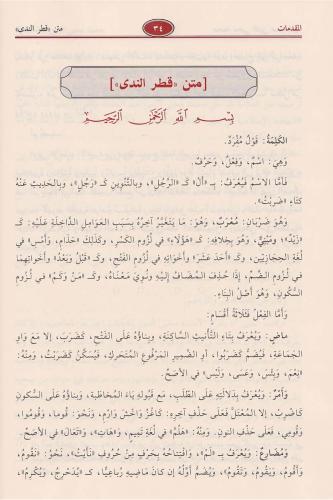 المقدمات ٣٤ متن «قطر الندى»
[متن «قطر الندى»]
بِسْمِ اللَّهِ الرَّحْمَنِ الرَّحِيمِ
الكَلِمَةُ: قَوْلٌ مُفْرَدٌ.
وَهِيَ: اسْمٌ، وَفِعْلٌ، وَحَرْفٌ.
فَأَمَّا الِاسْمُ فَيُعْرَفُ: بِـ «أَلْ» كَـ «الرَّجُلِ»، وَبِالتَّنْوِينِ كَـ «رَجُلٍ»، وَبِالحَدِيثِ عَنْهُ
كَتَاءِ «ضَرَبْتُ».
وَهُوَ ضَرْبَانِ: مُعْرَبٌ، وَهُوَ: مَا يَتَغَيَّرُ آخِرُهُ بِسَبَبِ العَوَامِلِ الدَّاخِلَةِ عَلَيْهِ: كَـ
«زَيْدٍ» وَمَبْنِيٌّ، وَهُوَ بِخِلَافِهِ: كَـ «هَؤُلَاءِ» فِي لُزُومِ الكَسْرِ، وَكَذَلِكَ «حَذَامِ، وَأَمْسِ» فِي
لُغَةِ الحِجَازِيِّينَ، وَكَـ «أَحَدَ عَشَرَ» وَأَخَوَاتِهِ فِي لُزُومِ الفَتْحِ، وَكَـ «قَبْلُ وَبَعْدُ» وَأَخَوَاتِهِمَا
فِي لُزُومِ الضَّمِّ، إِذَا حُذِفَ المُضَافُ إِلَيْهِ وَنُوِيَ مَعْنَاهُ، وَكَـ «مَنْ وَكَمْ» فِي لُزُومِ
السُّكُونِ، وَهُوَ أَصْلُ البِنَاءِ.
وَأَمَّا الفِعْلُ فَثَلَاثَةُ أَقْسَامٍ:
مَاضٍ: وَيُعْرَفُ بِتَاءِ التَّأْنِيثِ السَّاكِنَةِ، وَبِنَاؤُهُ عَلَى الفَتْحِ، كَضَرَبَ، إِلَّا مَعَ وَاوِ
الجَمَاعَةِ، فَيُضَمُّ كَضَرَبُوا، أَوِ الضَّمِيرِ المَرْفُوعِ المُتَحَرِّكِ، فَيُسَكَّنُ كَضَرَبْتُ، وَمِنْهُ:
«نِعْمَ، وَبِئْسَ، وَعَسَى، وَلَيْسَ» فِي الأَصَحِّ.
وَأَمْرٌ: وَيُعْرَفُ بِدَلَالَتِهِ عَلَى الطَّلَبِ، مَعَ قَبُولِهِ يَاءَ المُخَاطَبَةِ، وَبِنَاؤُهُ عَلَى السُّكُونِ
كَاضْرِبْ، إِلَّا المُعْتَلَّ فَعَلَى حَذْفِ آخِرِهِ: كَاغْزُ وَاخْشَ وَارْمِ، وَنَحْوَ: قُومَا، وَقُومُوا،
وَقُومِي، فَعَلَى حَذْفِ النُّونِ. وَمِنْهُ: «هَلُمَّ» فِي لُغَةِ تَمِيمٍ، وَ«هَاتِ»، وَ«تَعَالَ» فِي الأَصَحِّ.
وَمُضَارِعٌ: وَيُعْرَفُ بِـ «لَمْ»، وَافْتِتَاحُهُ بِحَرْفٍ مِنْ حُرُوفِ «نَأَيْتُ»، نَحْوُ: «نَقُومُ،
وَأَقُومُ، وَيَقُومُ، وَتَقُومُ»، وَيُضَمُّ أَوَّلُهُ إِنْ كَانَ مَاضِيهِ رُبَاعِيًّا، كَـ «يُدَحْرِجُ، وَيُكْرِمُ»،